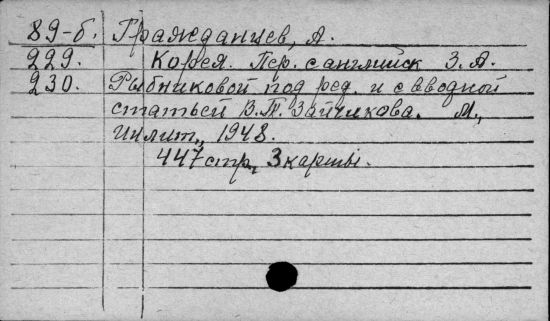 89-б. Гражданцев, А.
229. Корея. Пер. с английск З. А.
230. Рыбниковой под ред. и с вводной
статьей В. П. Зайчикова. М.,
Инлит., 1948.
447 стр., 3 карты.